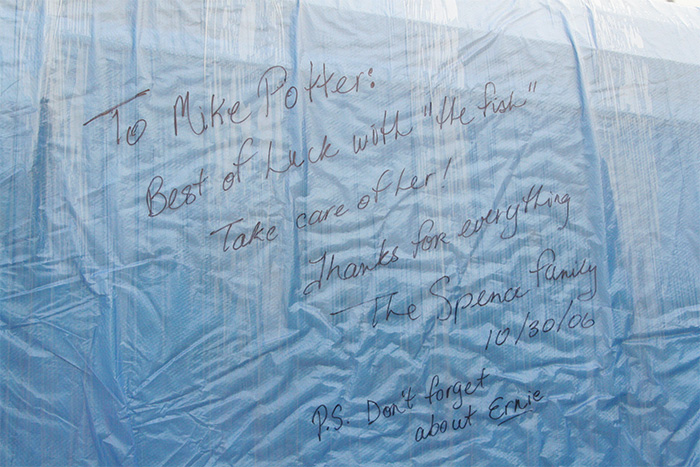 To Mike Potter:
Best of Luck with "the fish"
Take care of her!
Thanks for everything
— The Spence family
10/30/06
P.S. Don't forget
about Ernie